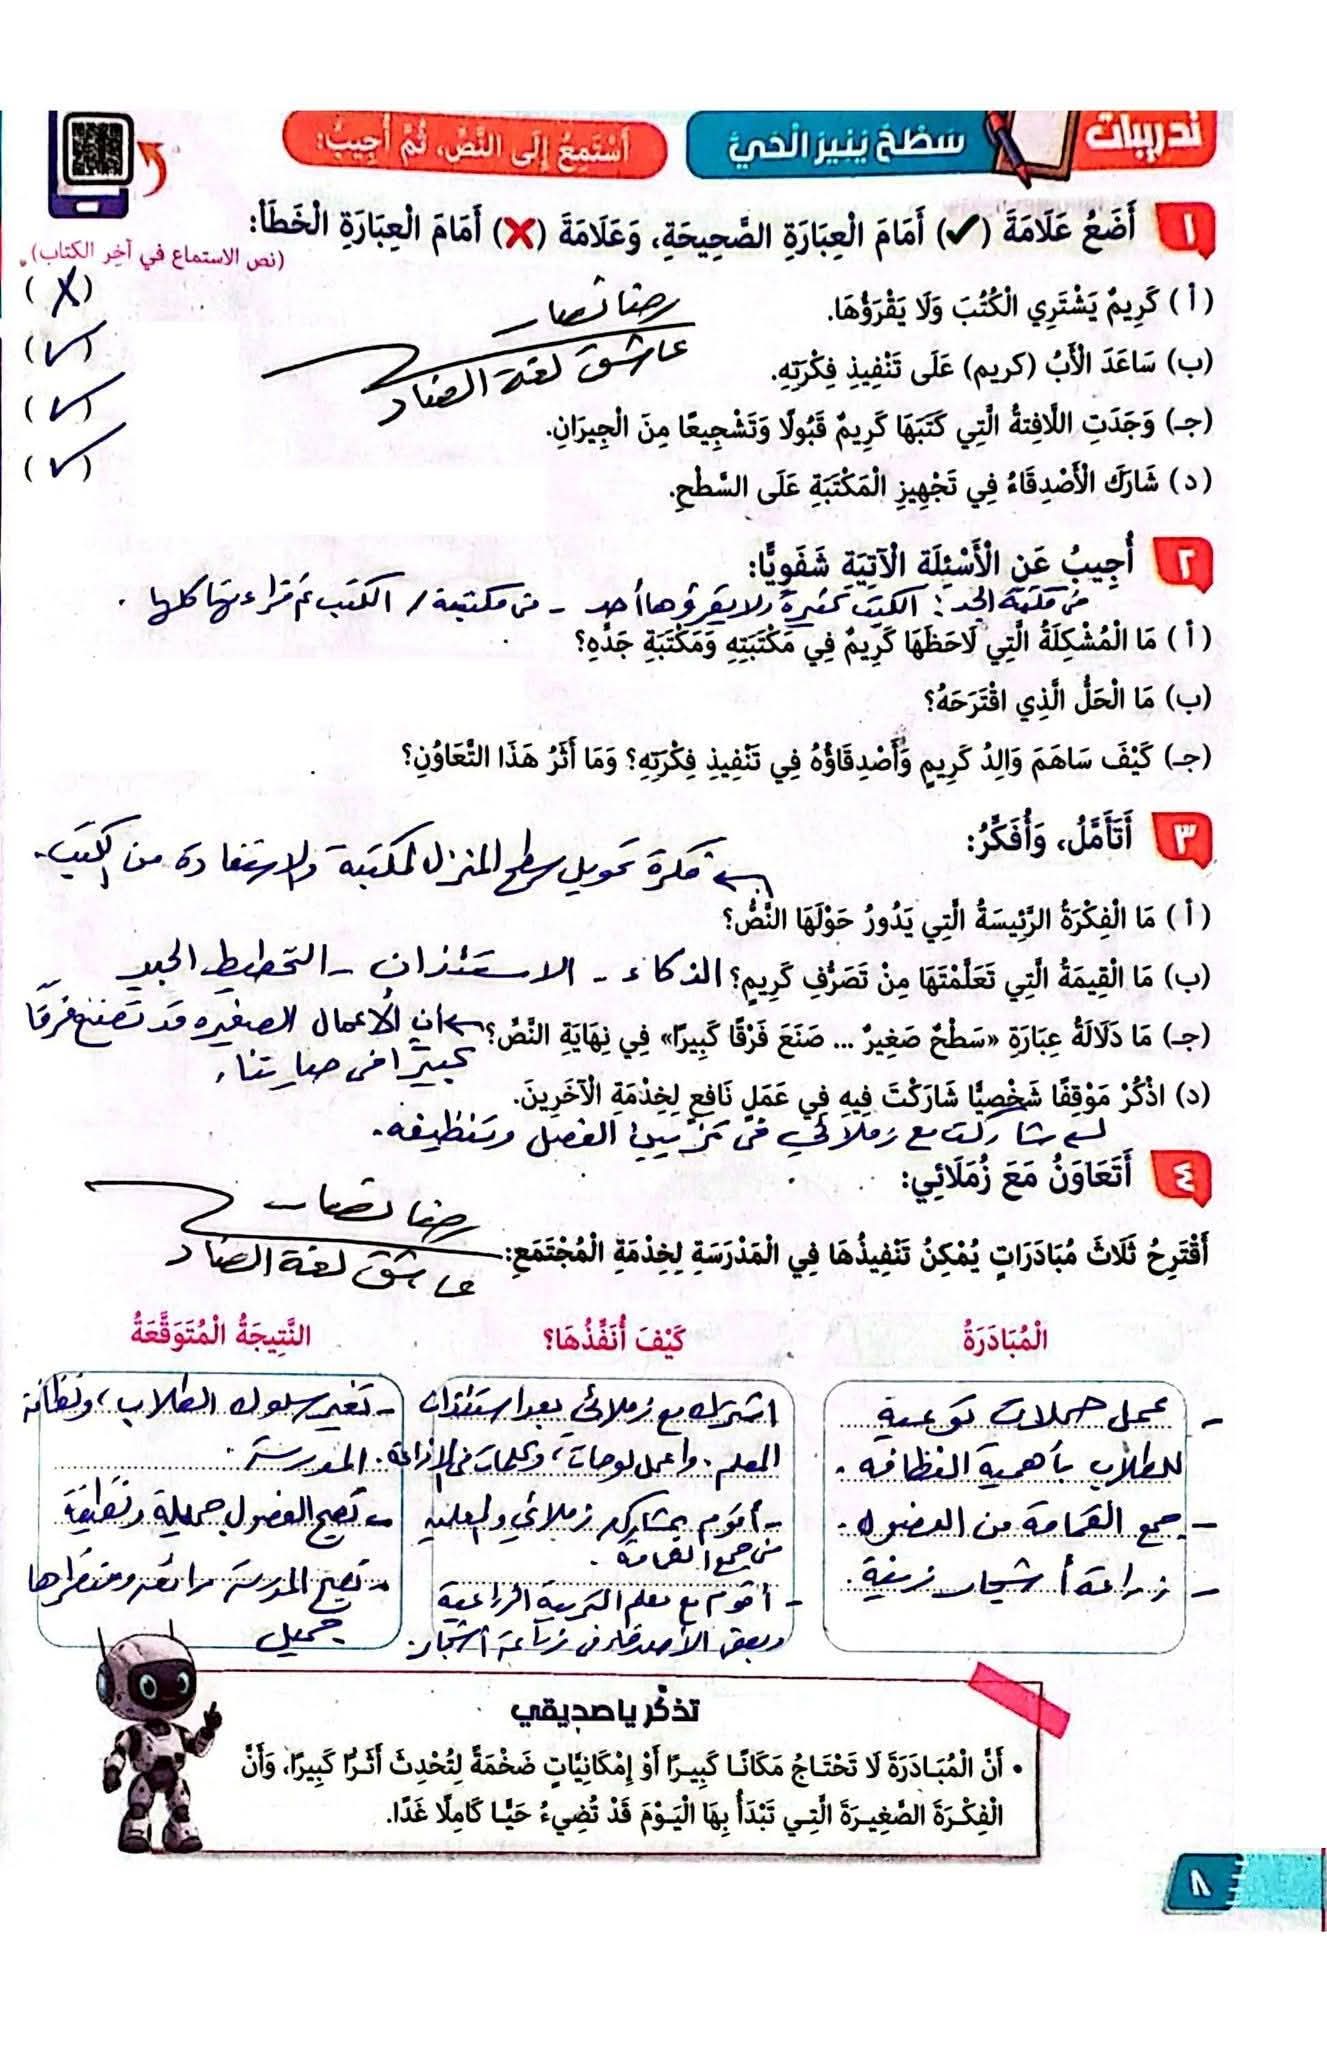 تدريبات سَطْحٌ يُنِيرُ الْحَيَّ أَسْتَمِعُ إِلَى النَّصِّ، ثُمَّ أُجِيبُ:
١ أَضَعُ عَلَامَةَ (✓) أَمَامَ الْعِبَارَةِ الصَّحِيحَةِ، وَعَلَامَةَ (✗) أَمَامَ الْعِبَارَةِ الْخَطَأْ:
(نص الاستماع في آخر الكتاب).
(أ) كَرِيمٌ يَشْتَرِي الْكُتُبَ وَلَا يَقْرَؤُهَا. (✗)
رضا نصار
(ب) سَاعَدَ الْأَبُ (كريم) عَلَى تَنْفِيذِ فِكْرَتِهِ. (✓)
عاشق لغة الضاد
(جـ) وَجَدَتِ اللَّافِتةُ الَّتِي كَتَبَهَا كَرِيمٌ قَبُولًا وَتَشْجِيعًا مِنَ الْجِيرَانِ. (✓)
(د) شَارَكَ الْأَصْدِقَاءُ فِي تَجْهِيزِ الْمَكْتَبَةِ عَلَى السَّطْحِ. (✓)
٢ أُجِيبُ عَنِ الْأَسْئِلَةِ الْآتِيَةِ شَفَوِيًّا:
فى مكتبة الجد: الكتب كثيرة ولا يقرؤها أحد - فى مكتبته / الكتب تم قراءتها كلها .
(أ) مَا الْمُشْكِلَةُ الَّتِي لَاحَظَهَا كَرِيمٌ فِي مَكْتَبَتِهِ وَمَكْتَبَةِ جَدِّهِ؟
(ب) مَا الْحَلُّ الَّذِي اقْتَرَحَهُ؟
(جـ) كَيْفَ سَاهَمَ وَالِدُ كَرِيمٍ وَأَصْدِقَاؤُهُ فِي تَنْفِيذِ فِكْرَتِهِ؟ وَمَا أَثَرُ هَذَا التَّعَاوُنِ؟
٣ أَتَأَمَّلُ، وَأُفَكِّرُ:
فكرة تحويل سطح المنزل لمكتبة والاستفادة من الكتب.
(أ) مَا الْفِكْرَةُ الرَّئِيسَةُ الَّتِي يَدُورُ حَوْلَهَا النَّصُّ؟
(ب) مَا الْقِيمَةُ الَّتِي تَعَلَّمْتَهَا مِنْ تَصَرُّفِ كَرِيمٍ؟ الذكاء - الاستئذان - التخطيط الجيد
(جـ) مَا دَلَالَةُ عِبَارَةِ «سَطْحٌ صَغِيرٌ ... صَنَعَ فَرْقًا كَبِيرًا» فِي نِهَايَةِ النَّصِّ؟ أن الأعمال الصغيرة قد تصنع فرقًا
كبيرًا فى حياتنا.
(د) اذْكُرْ مَوْقِفًا شَخْصِيًّا شَارَكْتَ فِيهِ فِي عَمَلٍ نَافِعٍ لِخِدْمَةِ الْآخَرِينَ.
شاركت مع زملائي فى تزيين الفصل وتنظيفه.
٤ أَتَعَاوَنُ مَعَ زُمَلَائِي:
رضا نصار
أَقْتَرِحُ ثَلَاثَ مُبَادَرَاتٍ يُمْكِنُ تَنْفِيذُهَا فِي الْمَدْرَسَةِ لِخِدْمَةِ الْمُجْتَمَعِ:
عاشق لغة الضاد
الْمُبَادَرَةُ كَيْفَ أُنَفِّذُهَا؟ النَّتِيجَةُ الْمُتَوَقَّعَةُ
- عمل حملات توعية
للطلاب بأهمية النظافة .
- جمع القمامة من الفصول .
- زراعة أشجار زينة .
اشترك مع زملائي بعد استئذان
المعلم . واعمل لوحات، وكلمات فى الإذاعة .
- أقوم بمشاركة زملائي والمعلمة
فى جمع القمامة .
- أقوم مع معلم التربية الزراعية
وبعض الأصدقاء فى زراعة أشجار.
- تغير سلوك الطلاب، ونظافة
المدرسة .
- تصبح الفصول جميلة ونظيفة
- تصبح المدرسة رائعة ومنظرها
جميل
تذكَّر يا صديقي
• أَنَّ الْمُبَادَرَةَ لَا تَحْتَاجُ مَكَانًا كَبِيرًا أَوْ إِمْكَانِيَّاتٍ ضَخْمَةً لِتُحْدِثَ أَثَرًا كَبِيرًا، وَأَنَّ
الْفِكْرَةَ الصَّغِيرَةَ الَّتِي تَبْدَأُ بِهَا الْيَوْمَ قَدْ تُضِيءُ حَيًّا كَامِلًا غَدًا.
٨